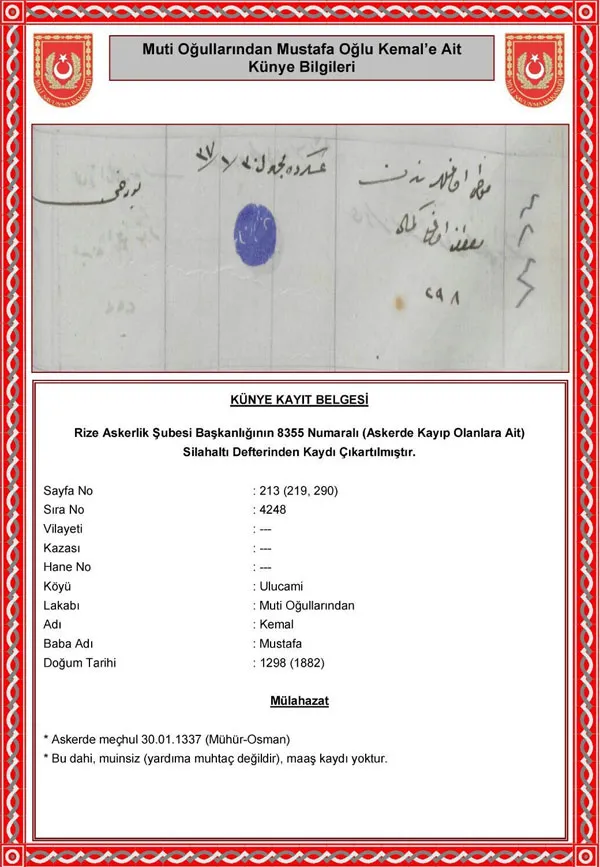 Muti Oğullarından Mustafa Oğlu Kemal’e Ait
Künye Bilgileri
عسكرده مجهول ٣٠/١/٣٧
٢٩٨
KÜNYE KAYIT BELGESİ
Rize Askerlik Şubesi Başkanlığının 8355 Numaralı (Askerde Kayıp Olanlara Ait)
Silahaltı Defterinden Kaydı Çıkartılmıştır.
Sayfa No : 213 (219, 290)
Sıra No : 4248
Vilayeti : ---
Kazası : ---
Hane No : ---
Köyü : Ulucami
Lakabı : Muti Oğullarından
Adı : Kemal
Baba Adı : Mustafa
Doğum Tarihi : 1298 (1882)
Mülahazat
* Askerde meçhul 30.01.1337 (Mühür-Osman)
* Bu dahi, muinsiz (yardıma muhtaç değildir), maaş kaydı yoktur.